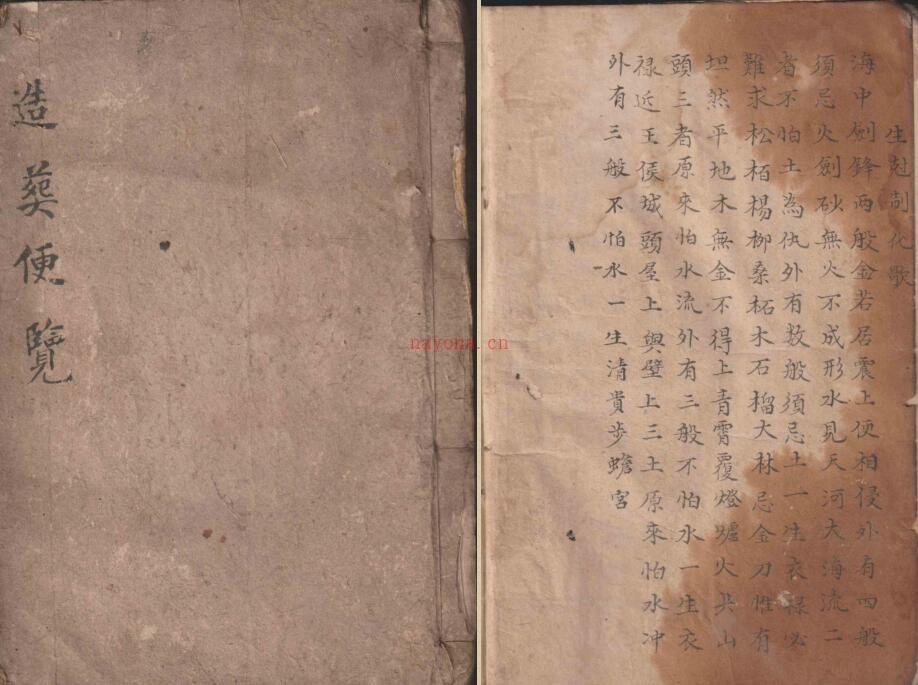 造葬便覽
生尅制化歌
海中劍鋒兩般金若居震上便相侵外有四般
須忌火劍砂無火不成形水見天河大海流二
者不怕土為仇外有数般須忌土一生衣禄必
難求松栢楊柳桑柘木石榴大林忌金刀惟有
坦然平地木無金不得上青霄覆燈爐火共山
頭三者原來怕水流外有三般不怕水一生衣
禄近王侯城頭屋上與壁上三土原來怕水冲
外有三般不怕水一生清貴步蟾宮
nayona.cn